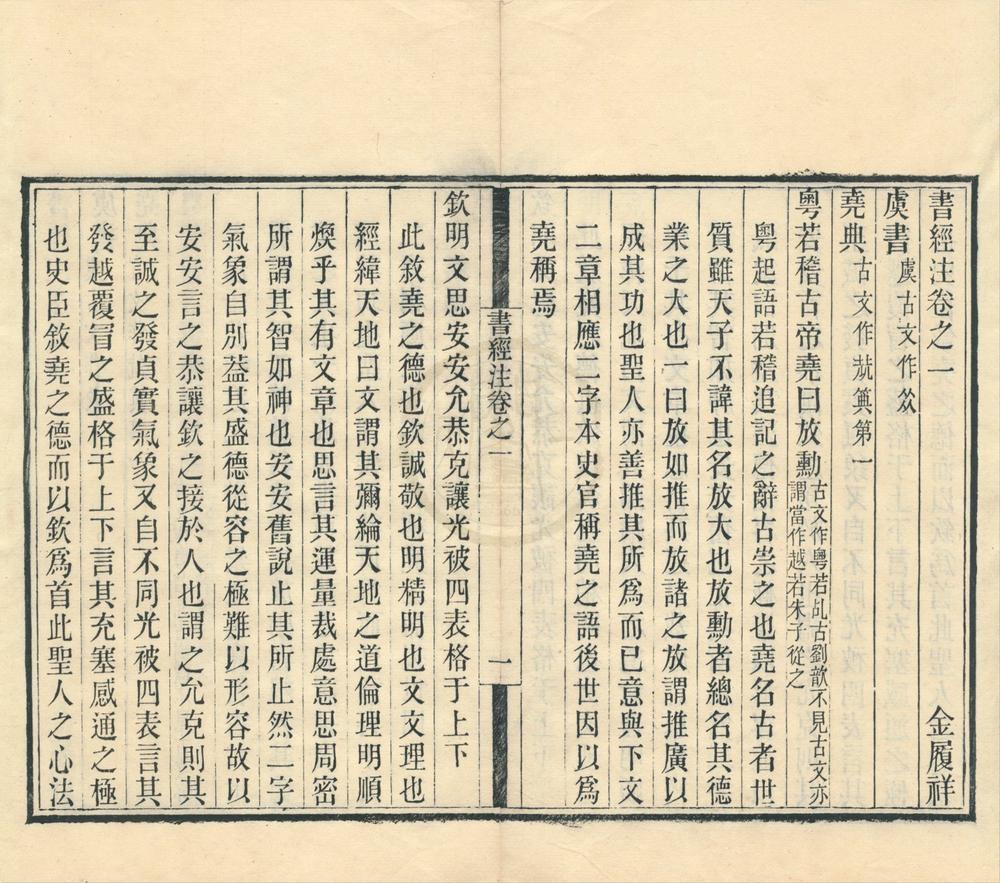 書經注卷之一 金履祥
虞書虞古文作𠈌
堯典古文作𡗥箅第一
粵若稽古帝堯曰放勳古文作粵若乩古劉歆不見古文亦謂當作越若朱子從之
粵起語若稽追記之辭古崇之也堯名古者世
質雖天子不諱其名放大也放勳者總名其德
業之大也一曰放如推而放諸之放謂推廣以
成其功也聖人亦善推其所爲而已意與下文
二章相應二字本史官稱堯之語後世因以爲
堯稱焉
書經注卷之一 一
欽明文思安安允恭克讓光被四表格于上下
此敘堯之德也欽誠敬也明精明也文文理也
經緯天地曰文謂其彌綸天地之道倫理明順
煥乎其有文章也思言其運量裁處意思周密
所謂其智如神也安安舊說止其所止然二字
氣象自別葢其盛德從容之極難以形容故以
安安言之恭讓欽之接於人也謂之允克則其
至誠之發貞實氣象又自不同光被四表言其
發越覆冒之盛格于上下言其充塞感通之極
也史臣敘堯之德而以欽爲首此聖人之心法